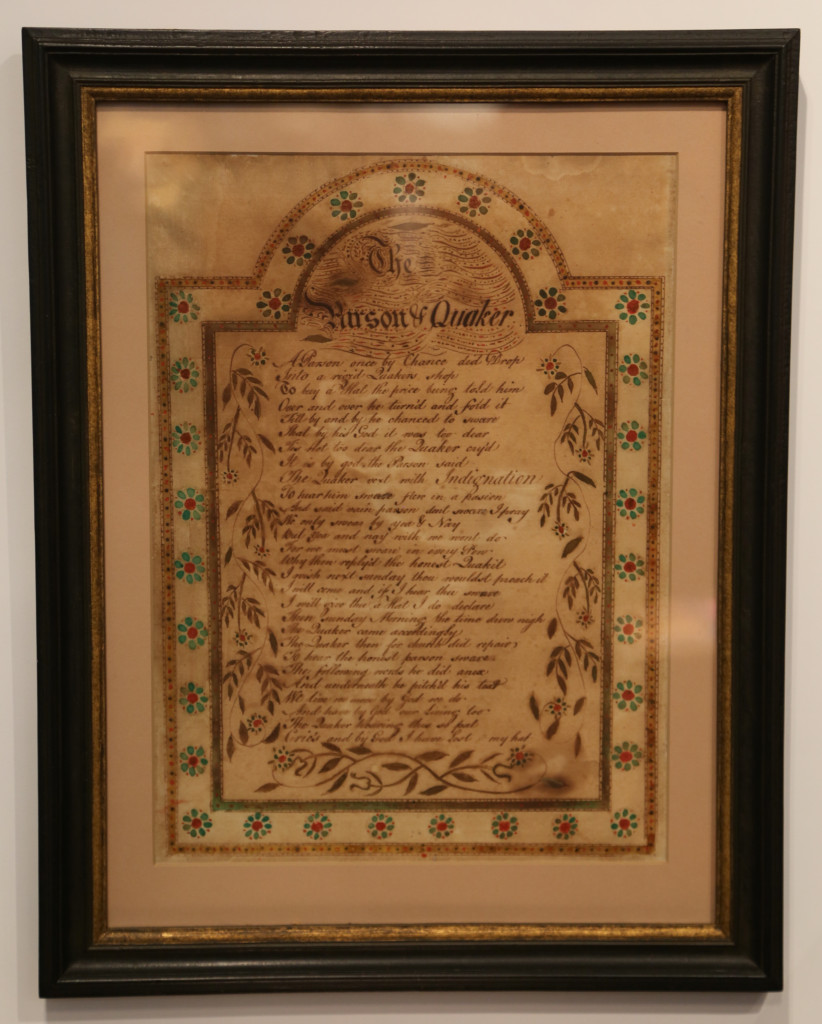 The
Parson & Quaker
A Parson once by Chance did Drop
Into a rigid Quakers shop
To buy a Hat the price being told him
Over and over he turn'd and fold it
Till by and by he chanced to sware
That by his God it was too dear
Tis not too dear the Quaker cry'd
It is by god the Parson said
The Quaker with Indignation
To hear him sware flew in a passion
And said vain parson dont sware I pray
We only swear by yea & Nay
But yea and nay with we wont do
For we must swear in every
Why then reply'd the honest
I wish next sunday thou wouldst preach it
I will come and if I hear thee sware
I will give thee a Hat I do declare
Then Sunday Morning the time drew nigh
The Quaker came accordingly
The Quaker then for church did repair
To hear the honest parson sware
The following words he did
And underneath he pitch'd his text
We live we move by God we do
And have by God our being too
The Quaker hearing this sd
Cries and by God I have Lost my hat